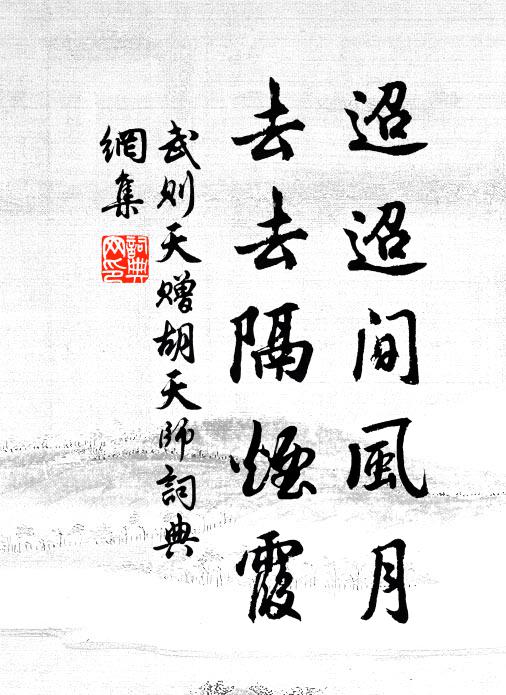 迢迢间風月
去去隔煙霞
武则天赠胡天师詞典
網集
詞典
网印